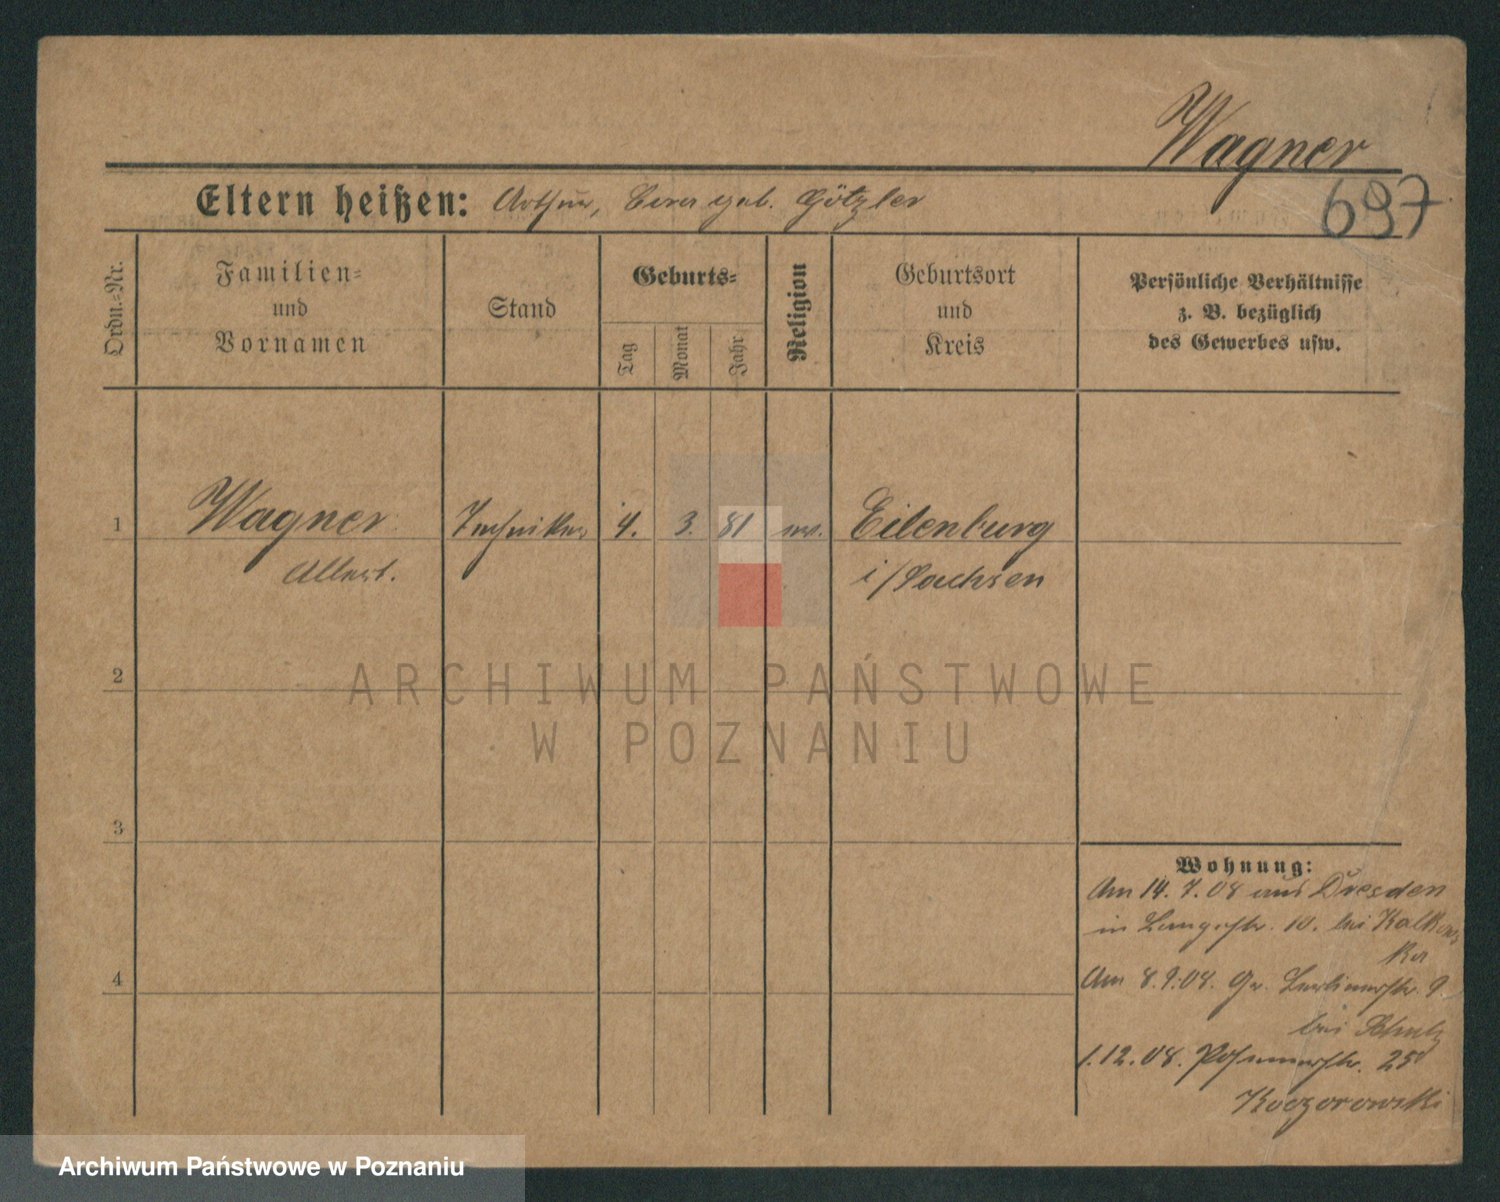 Wagner
697
Eltern heißen: Arthur, geb. Götzler
Ordn.-Nr.
Familien-
und
Vornamen
Stand
Geburts-
Tag
Monat
Jahr
Religion
Geburtsort
und
Kreis
Persönliche Verhältnisse
z. B. bezüglich
des Gewerbes usw.
1
Wagner
Albert.
Techniker
4.
3.
81
ev.
Eilenburg
i/Sachsen
2
3
4
Wohnung:
Am 14. 7. 08 aus Dresden
in Langestr. 10. bei Kalkows
ka
Am 8.9.08. Gr. Berlinerstr. 9.
bei Schulz
1.12.08. 25
Koczorowski
ARCHIWUM PAŃSTWOWE
W POZNANIU
Archiwum Państwowe w Poznaniu